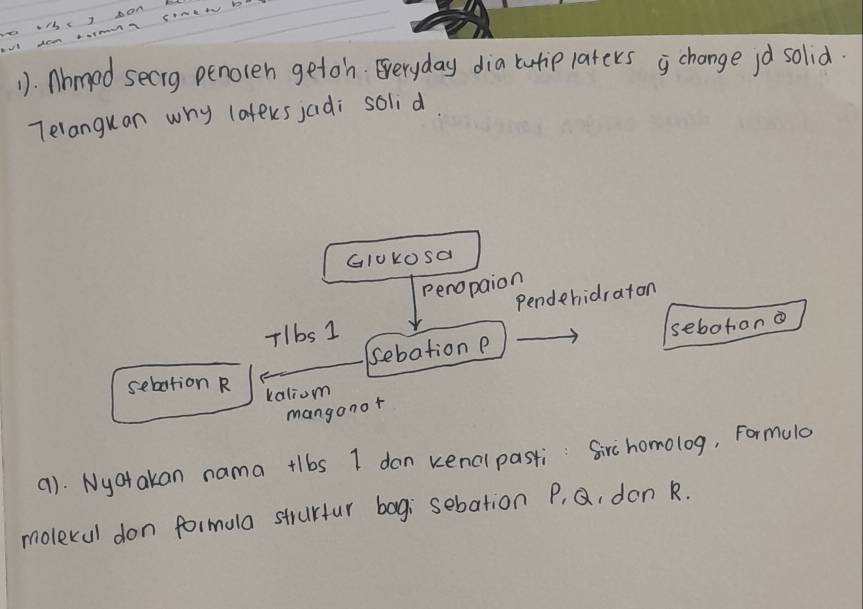 1). Ahmad seorg penoreh getah. Everyday dia kutip lateks yg change jd solid.
Terangkan why lateks jadi solid.
Glukosa
Penapaian
Pendehidratan
Tlbs 1
Sebatian P
Sebatian Q
Sebatian R
kalium
manganat
a). Nyatakan nama tlbs 1 dan kenalpasti : Siri homolog, Formula
molekul dan formula struktur bagi sebatian P, Q, dan R.